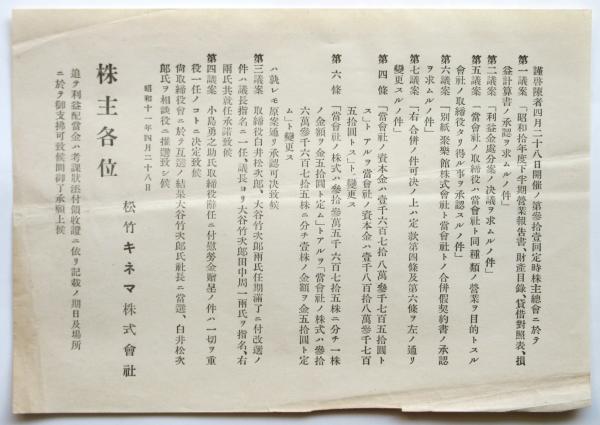 謹啓陳者四月二十八日開催ノ第參拾壹回定時株主總會ニ於テ
第一議案 「昭和拾年度下半期營業報告書、財產目錄、貸借對照表、損
益計算書ノ承認ヲ求ムルノ件」
第二議案 「利益金處分案ノ決議ヲ求ムルノ件」
第五議案 「當會社ノ取締役ハ當會社ト同種類ノ營業ヲ目的トスル
會社ノ取締役タリ得ル事ヲ承認スルノ件」
第六議案 「別紙樂館株式會社ト當會社トノ合併假契約書ノ承認
ヲ求ムルノ件」
第七議案 「右合併ノ件可決ノ上ハ定款第四條及第六條ヲ左ノ通リ
變更スルノ件」
第四條 「當會社ノ資本金ハ壹千六百七拾八萬參千七百五拾圓ト
ス」トアルヲ「當會社ノ資本金ハ壹千八百拾八萬參千七百
五拾圓トス」ト變更ス
第六條 「當會社ノ株式ハ參拾參萬五千六百七拾五株ニ分チ一株
ノ金額ヲ金五拾圓ト定ム」トアルヲ「當會社ノ株式ハ參拾
六萬參千六百七拾五株ニ分チ壹株ノ金額ヲ金五拾圓ト定
ム」ト變更ス
ハ孰レモ原案通リ承認可決致候
第三議案 取締役白井松次郎、大谷竹次郎兩氏任期滿了ニ付改選ノ
件ハ議長指名ニ一任、議長ヨリ大谷竹次郎田中周一兩氏ヲ指名、右
兩氏共就任承諾致候
第四議案 小島勇之助氏取締役辭任ニ付慰勞金贈呈ノ件ハ一切ヲ重
役一任ノコトニ決定致候
尙取締役會ニ於テ互選ノ結果大谷竹次郎氏社長ニ當選、白井松次
郎氏ヲ相談役ニ推選致シ候
昭和十一年四月二十八日
松竹キネマ株式會社
株主各位
追テ利益配當金ハ考課狀添付領收證ニ依リ記載ノ期日及場所
ニ於テ御支拂可致候間御了承願上候